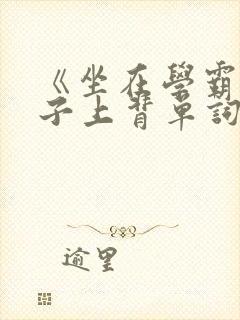 《坐在學霸
子上背單詞
逾里